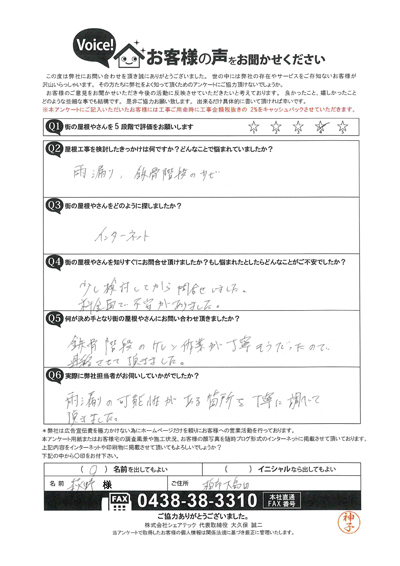 Voice!
お客様の声をお聞かせください
この度は弊社にお問い合わせを頂き誠にありがとうございました。世の中には弊社の存在やサービスをご存知ないお客様が
沢山いらっしゃいます。その方たちに弊社をよく知って頂くためのアンケートにご協力頂けないでしょうか。
お客様のご意見をお聞かせいただき今後の活動に反映させていただきたいと考えております。良かったこと、嬉しかったこと
どのような些細な事でも結構です。是非ご協力お願い致します。出来るだけ具体的に書いて頂ければ幸いです。
※本アンケートにご記入いただいたお客様には工事ご用命時に工事金額税抜きの2%をキャッシュバックさせていただきます。
Q1 街の屋根やさんを5段階で評価をお願いします ☆ ☆ ☆ ☆ ☆
Q2 屋根工事を検討したきっかけは何ですか?どんなことで悩まれていましたか?
雨漏り、鉄骨階段のサビ
Q3 街の屋根やさんをどのように探しましたか?
インターネット
Q4 街の屋根やさんを知りすぐにお問合せ頂けましたか?もし悩まれたとしたらどんなことがご不安でしたか?
少し検討してから問合せしました。
不安がありました。
Q5 何が決め手となり街の屋根やさんにお問い合わせ頂きましたか?
鉄骨階段のケレン作業が丁寧そうだったので、
連絡させて頂きました。
Q6 実際に弊社担当者がお伺いしていかがでしたか?
雨漏りの可能性がある箇所を丁寧に調べて
頂きました。
*弊社は広告宣伝費を極力かけない為にホームページだけを頼りにお客様への営業活動を行っております。
本アンケート用紙またはお客様宅の調査風景や施工状況、お客様の顔写真を随時ブログ形式のインターネットに掲載させて頂いております。
上記内容をインターネットや印刷物に掲載させて頂いてもよろしいでしょうか?
下記の中から〇印をお付け下さい。
( 〇 ) 名前を出してもよい ( ) イニシャルなら出してもよい
名前 様 ご住所
FAX 0438-38-3310 本社直通 FAX番号
ご協力ありがとうございました。
株式会社シェアテック 代表取締役 大久保 誠二
当アンケートで取得したお客様の個人情報は関係法規に基づき厳正に管理いたします。
神子